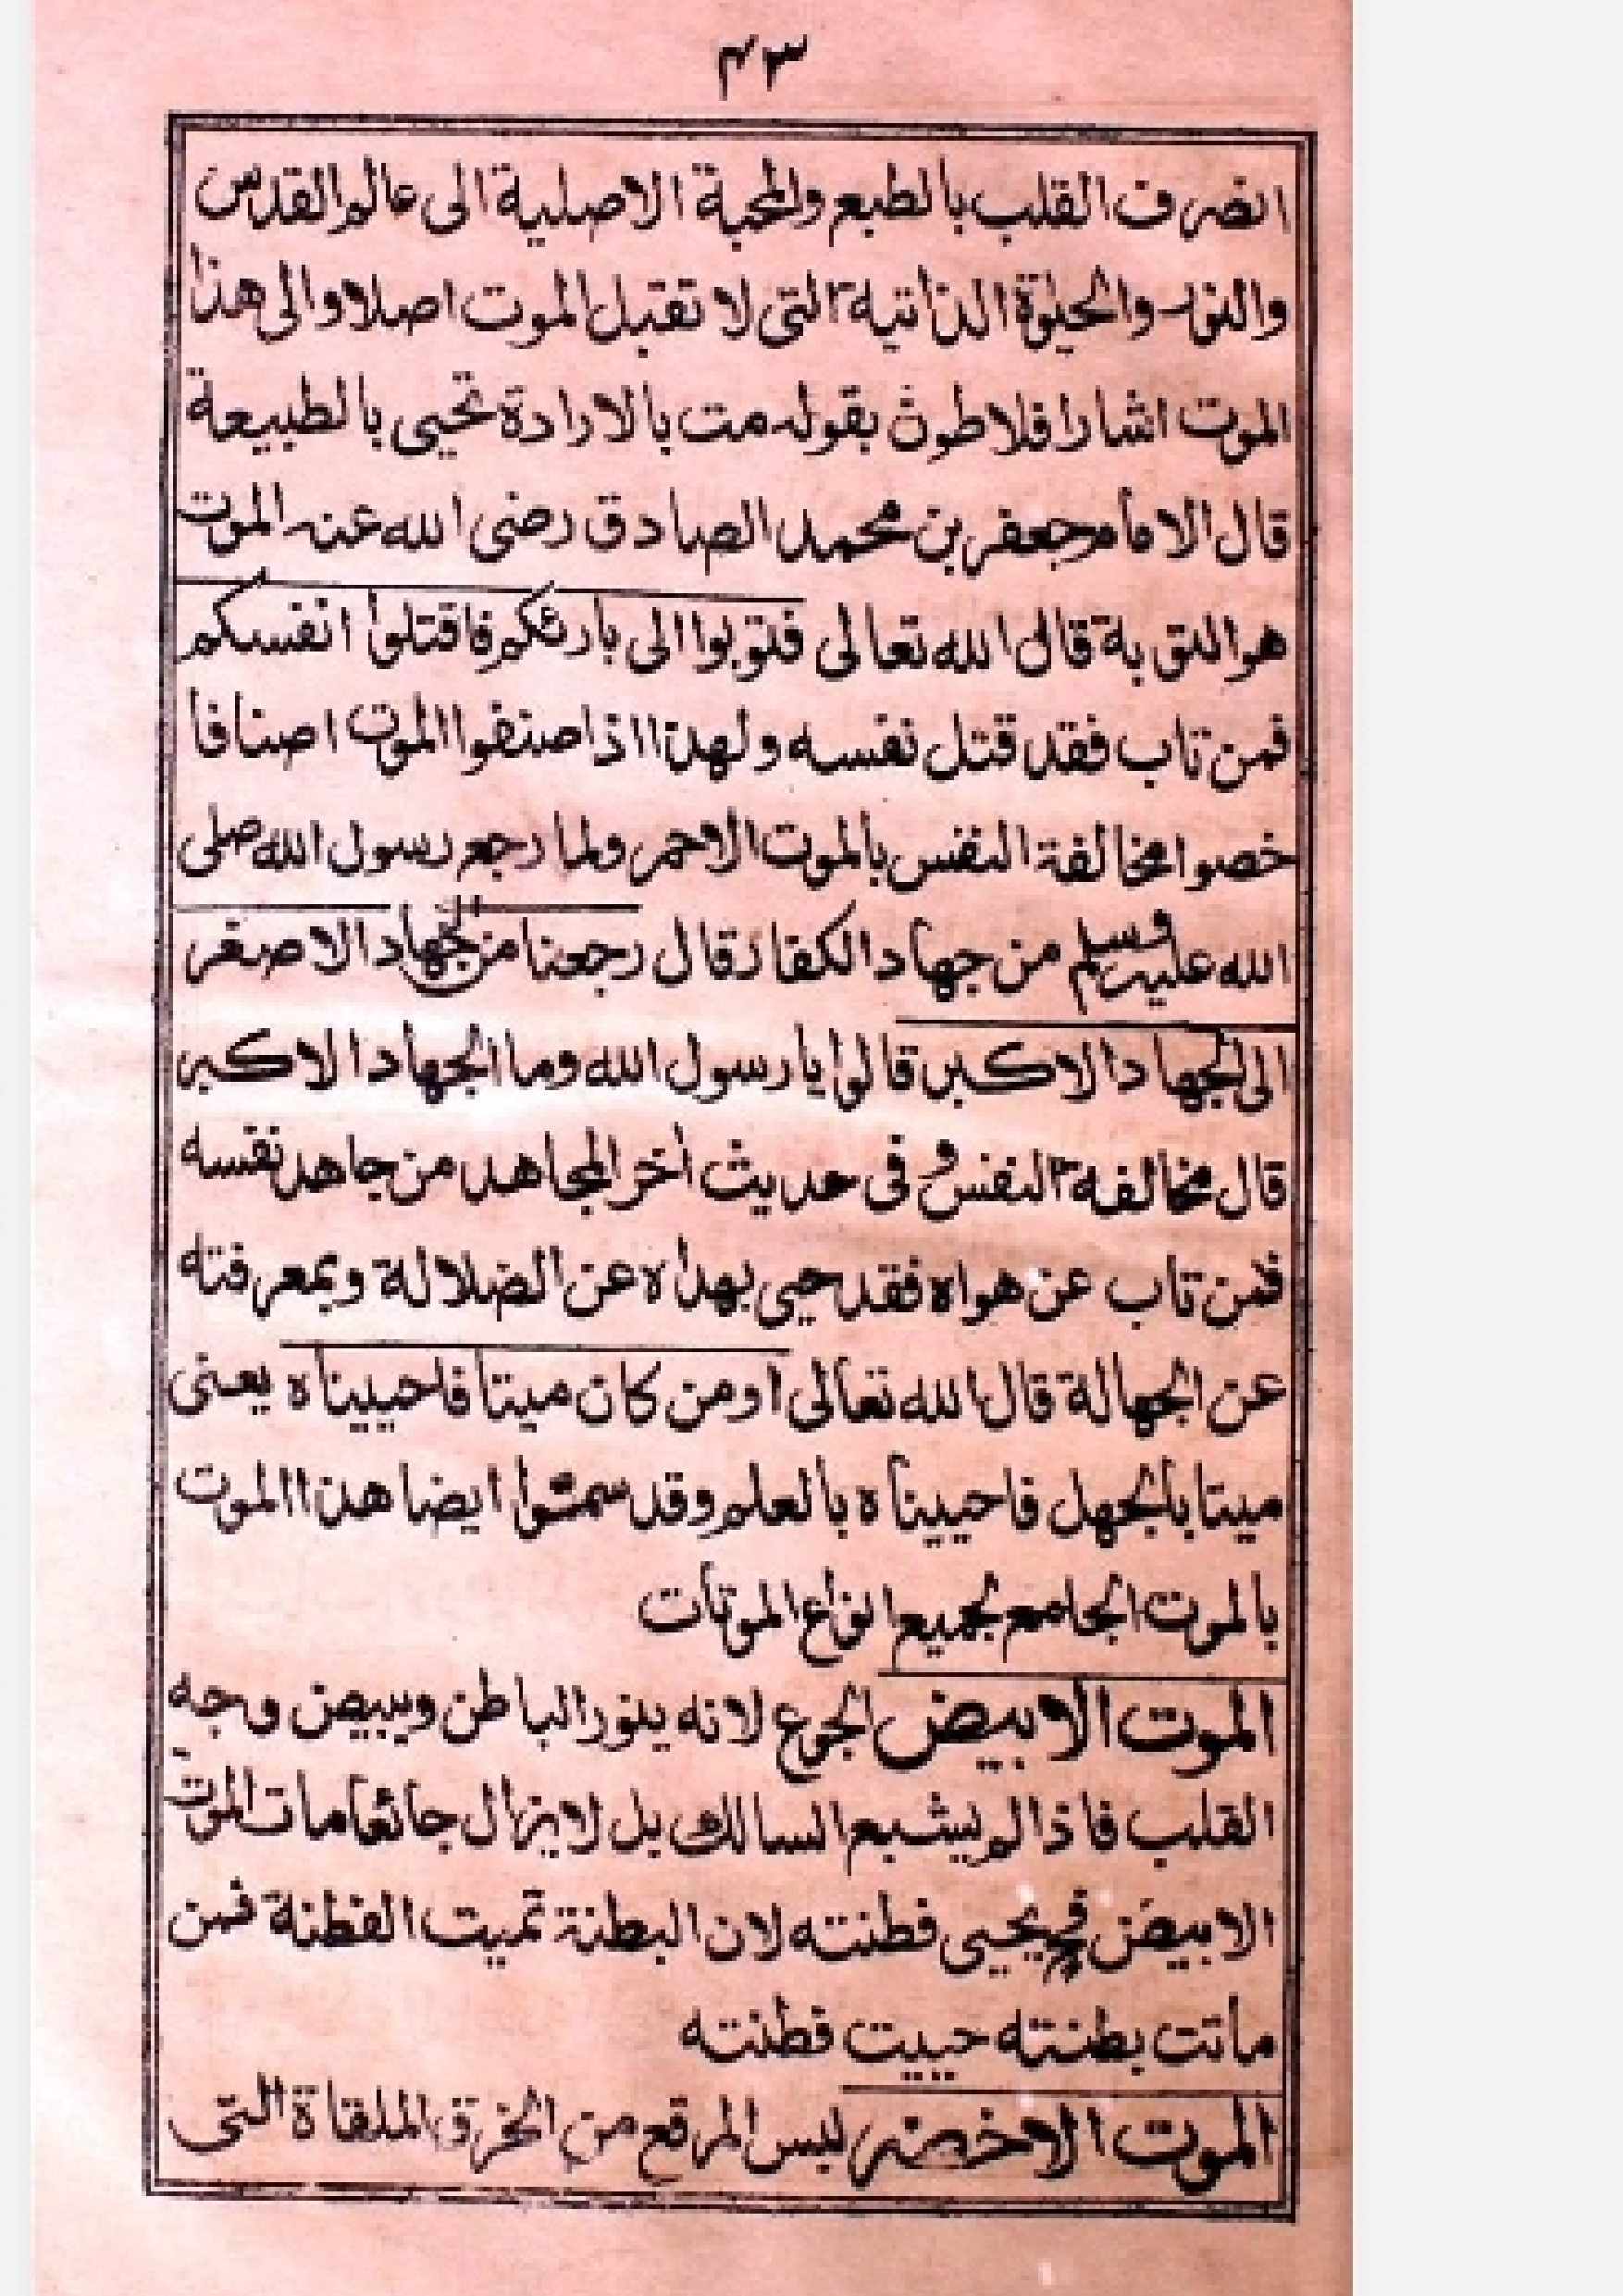 ۴۳
انصرف القلب بالطبع والمحبة الاصلية الى عالم القدس
والنور والحيوة الذاتية التى لا تقبل الموت اصلا والى هذا
الموت اشار افلاطون بقوله مت بالارادة تحيى بالطبيعة
قال الامام جعفر بن محمد الصادق رضى الله عنه الموت
هو التوبة قال الله تعالى فتوبوا الى بارئكم فاقتلوا انفسكم
فمن تاب فقد قتل نفسه ولهذا اذا صنفوا الموت اصنافا
خصوا مخالفة النفس بالموت الاحمر ولما رجع رسول الله صلى
الله عليه وسلم من جهاد الكفار قال رجعنا من الجهاد الاصغر
الى الجهاد الاكبر قالوا يا رسول الله وما الجهاد الاكبر
قال مخالفة النفس و فى حديث أخر المجاهد من جاهد نفسه
فمن تاب عن هواه فقد حيى بهداه عن الضلالة وبمعرفته
عن الجهالة قال الله تعالى او من كان ميتا فاحييناه يعنى
ميتا بالجهل فاحييناه بالعلم وقد سموا ايضا هذا الموت
بالموت الجامع لجميع انواع الموتات
الموت الابيض الجوع لانه ينور الباطن ويبيض وجه
القلب فاذا لم يشبع السالك بل لا يزال جائعا مات الموت
الابيض فح يحيى فطنته لان البطنة تميت الفطنة فمن
ماتت بطنته حييت فطنته
الموت الاخضر لبس المرقع من الخرق الملقاة التى